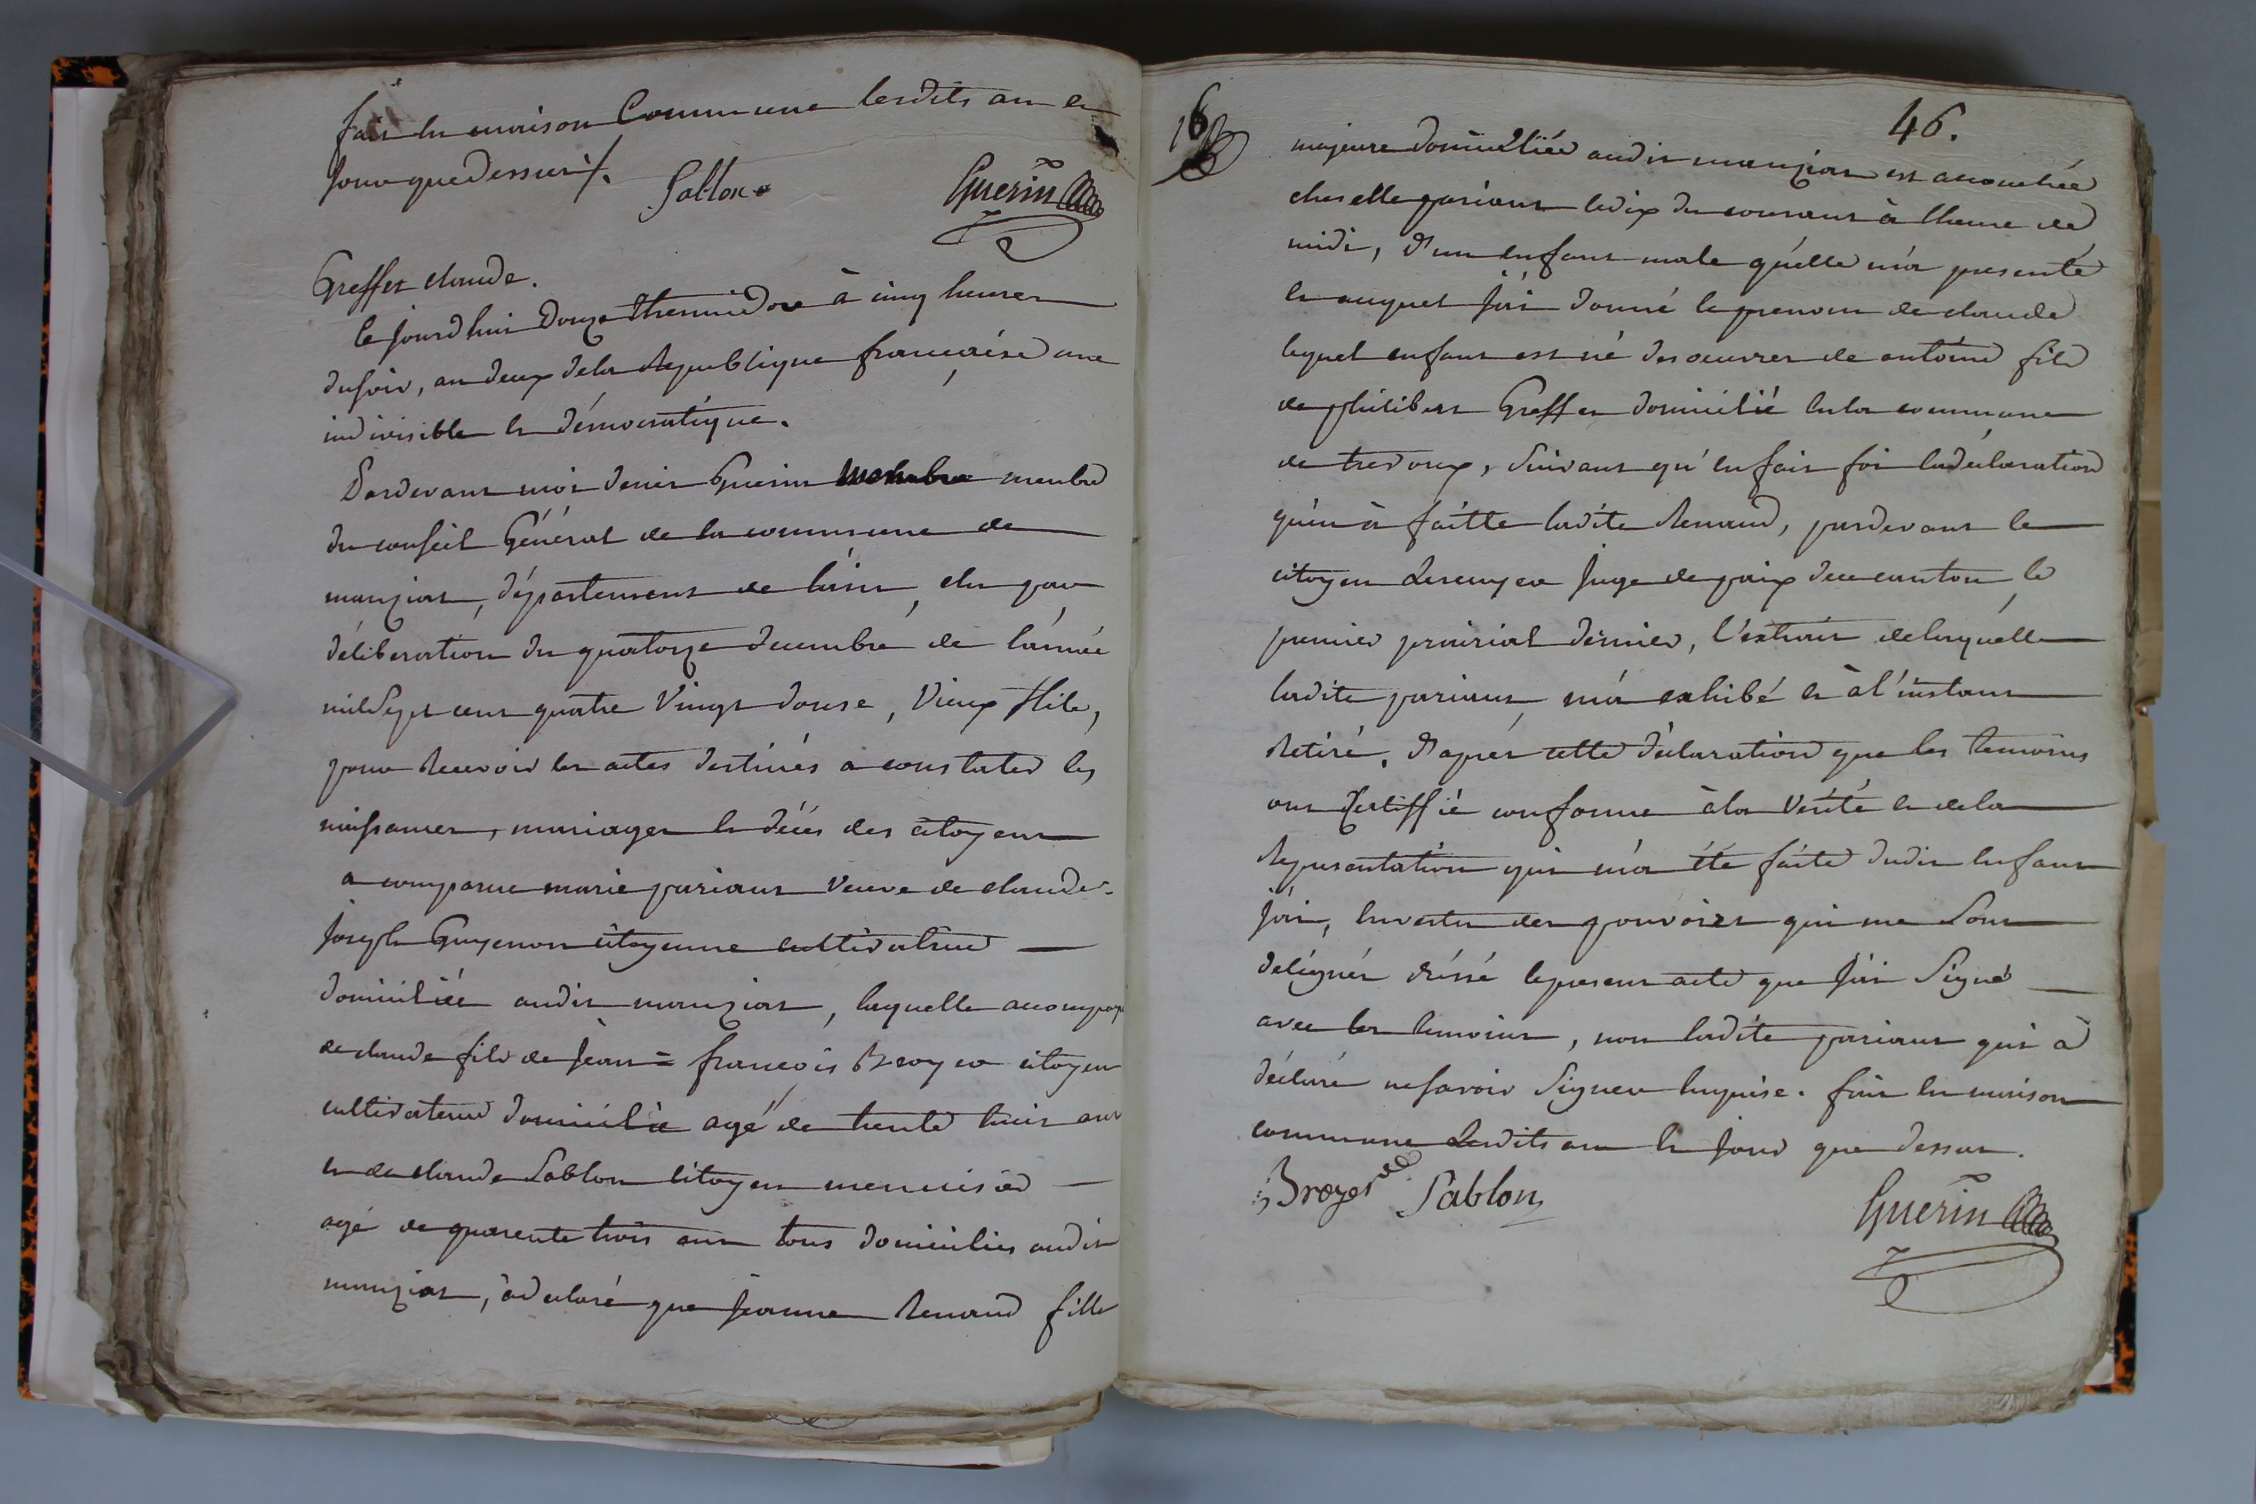 fait en maison Commune lesdits an et
jour que dessus /.
Sablon Guerin
Greffet claude.
Ce jourd'hui douze thermidor à cinq heures
du soir, an deux dela Republique francaise une
indivisible et démocratique.
Pardevant moi denis Guerin membre membre
du conseil Général de la commune de
manziat, département de l'ain, elu par
déliberation du quatorze decembre de l'année
mil sept cent quatre vingt douse, vieux stile,
pour recevoir les actes destinés a constater les
naissances, mariages et décés des citoyens
a comparue marie pariaux veuve de claude-
joseph Guyenon citoyenne cultivatrice
domiciliée audit manziat, laquelle accompag
de claude fils de jean = francois Broyer citoyen
cultivateur domicilié agé de trente trois ans
et de claude Sablon citoyen menuisier
agé de quarente trois ans tous domiciliés audit
manziat, à declaré que jeanne Renaud fille
16
46.
majeure domiciliée audit manziat est accouchée
ches elle pariaux le dix du courant à l'heure de
midi, d'un enfant male qu'elle m'a presenté
et auquel j'ai donné le prenom de claude
lequel enfant est né des oeuvres de antoine fils
de philibert Greffet domicilié en la commune
de trevoux, suivant qu'en fait foi la déclaration
qu'en à faitte ladite Renaud, pardevant le
citoyen juge de paix de ce canton, le
premier prairial dernier, l'extrait de laquelle
ladite pariaux m'a exhibé et à l'instant
retiré, d'après cette déclaration que les temoins
ont certiffié conforme à la vérité et de la
representation qui m'a été faite dudit enfant
j'ai, en vertu des pouvoirs qui me sont
delégués dréssé le present acte que j'ai signé
avec les temoins, non ladite pariaux qui a
déclaré ne savoir signer enquise. fait en maison
commune lesdits an et jour que dessus.
Broyer Sablon Guerin